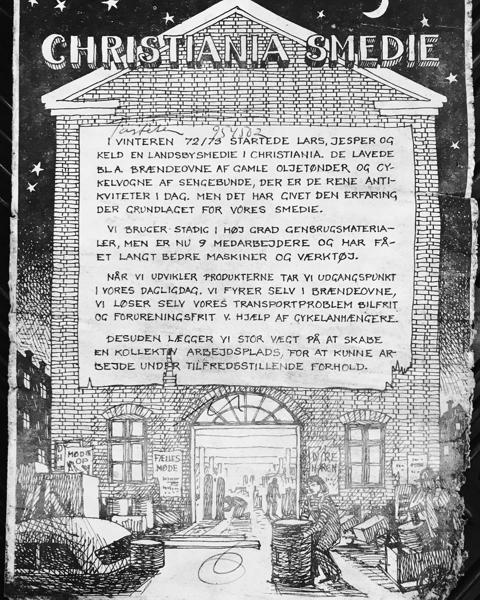 CHRISTIANIA SMEDIE
954802
I VINTEREN 72/73 STARTEDE LARS, JESPER OG
KELD EN LANDSBYSMEDIE I CHRISTIANIA. DE LAVEDE
BL.A. BRÆNDEOVNE AF GAMLE OLJETØNDER OG CY-
KELVOGNE AF SENGEBUNDE, DER ER DE RENE ANTI-
KVITETER I DAG. MEN DET HAR GIVET DEN ERFARING
DER GRUNDLAGET FOR VORES SMEDIE.
VI BRUGER STADIG I HØJ GRAD GENBRUGSMATERIA-
LER, MEN ER NU 9 MEDARBEJDERE OG HAR FÅ-
ET LANGT BEDRE MASKINER OG VÆRKTØJ.
NÅR VI UDVIKLER PRODUKTERNE TAR VI UDGANGSPUNKT
I VORES DAGLIGDAG. VI FYRER SELV I BRÆNDEOVNE,
VI LØSER SELV VORES TRANSPORTPROBLEM BILFRIT
OG FORURENINGSFRIT V. HJÆLP AF CYKELANHÆNGERE.
DESUDEN LÆGGER VI STOR VÆGT PÅ AT SKABE
EN KOLLEKTIV ARBEJDSPLADS, FOR AT KUNNE AR-
BEJDE UNDER TILFREDSSTILLENDE FORHOLD.
MØD
OP
FÆLLES
MØDE